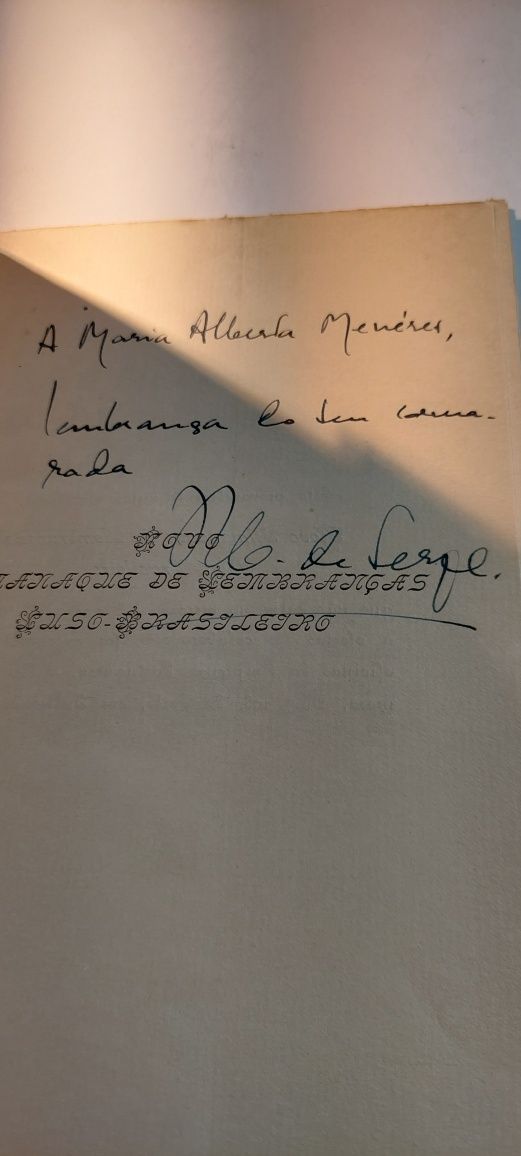 A Maria Alberta Menéres,
lembrança do seu cama-
rada
M. de Serpa.
NOVO
MANAQUE DE LEMBRANÇAS
LUSO-BRASILEIRO